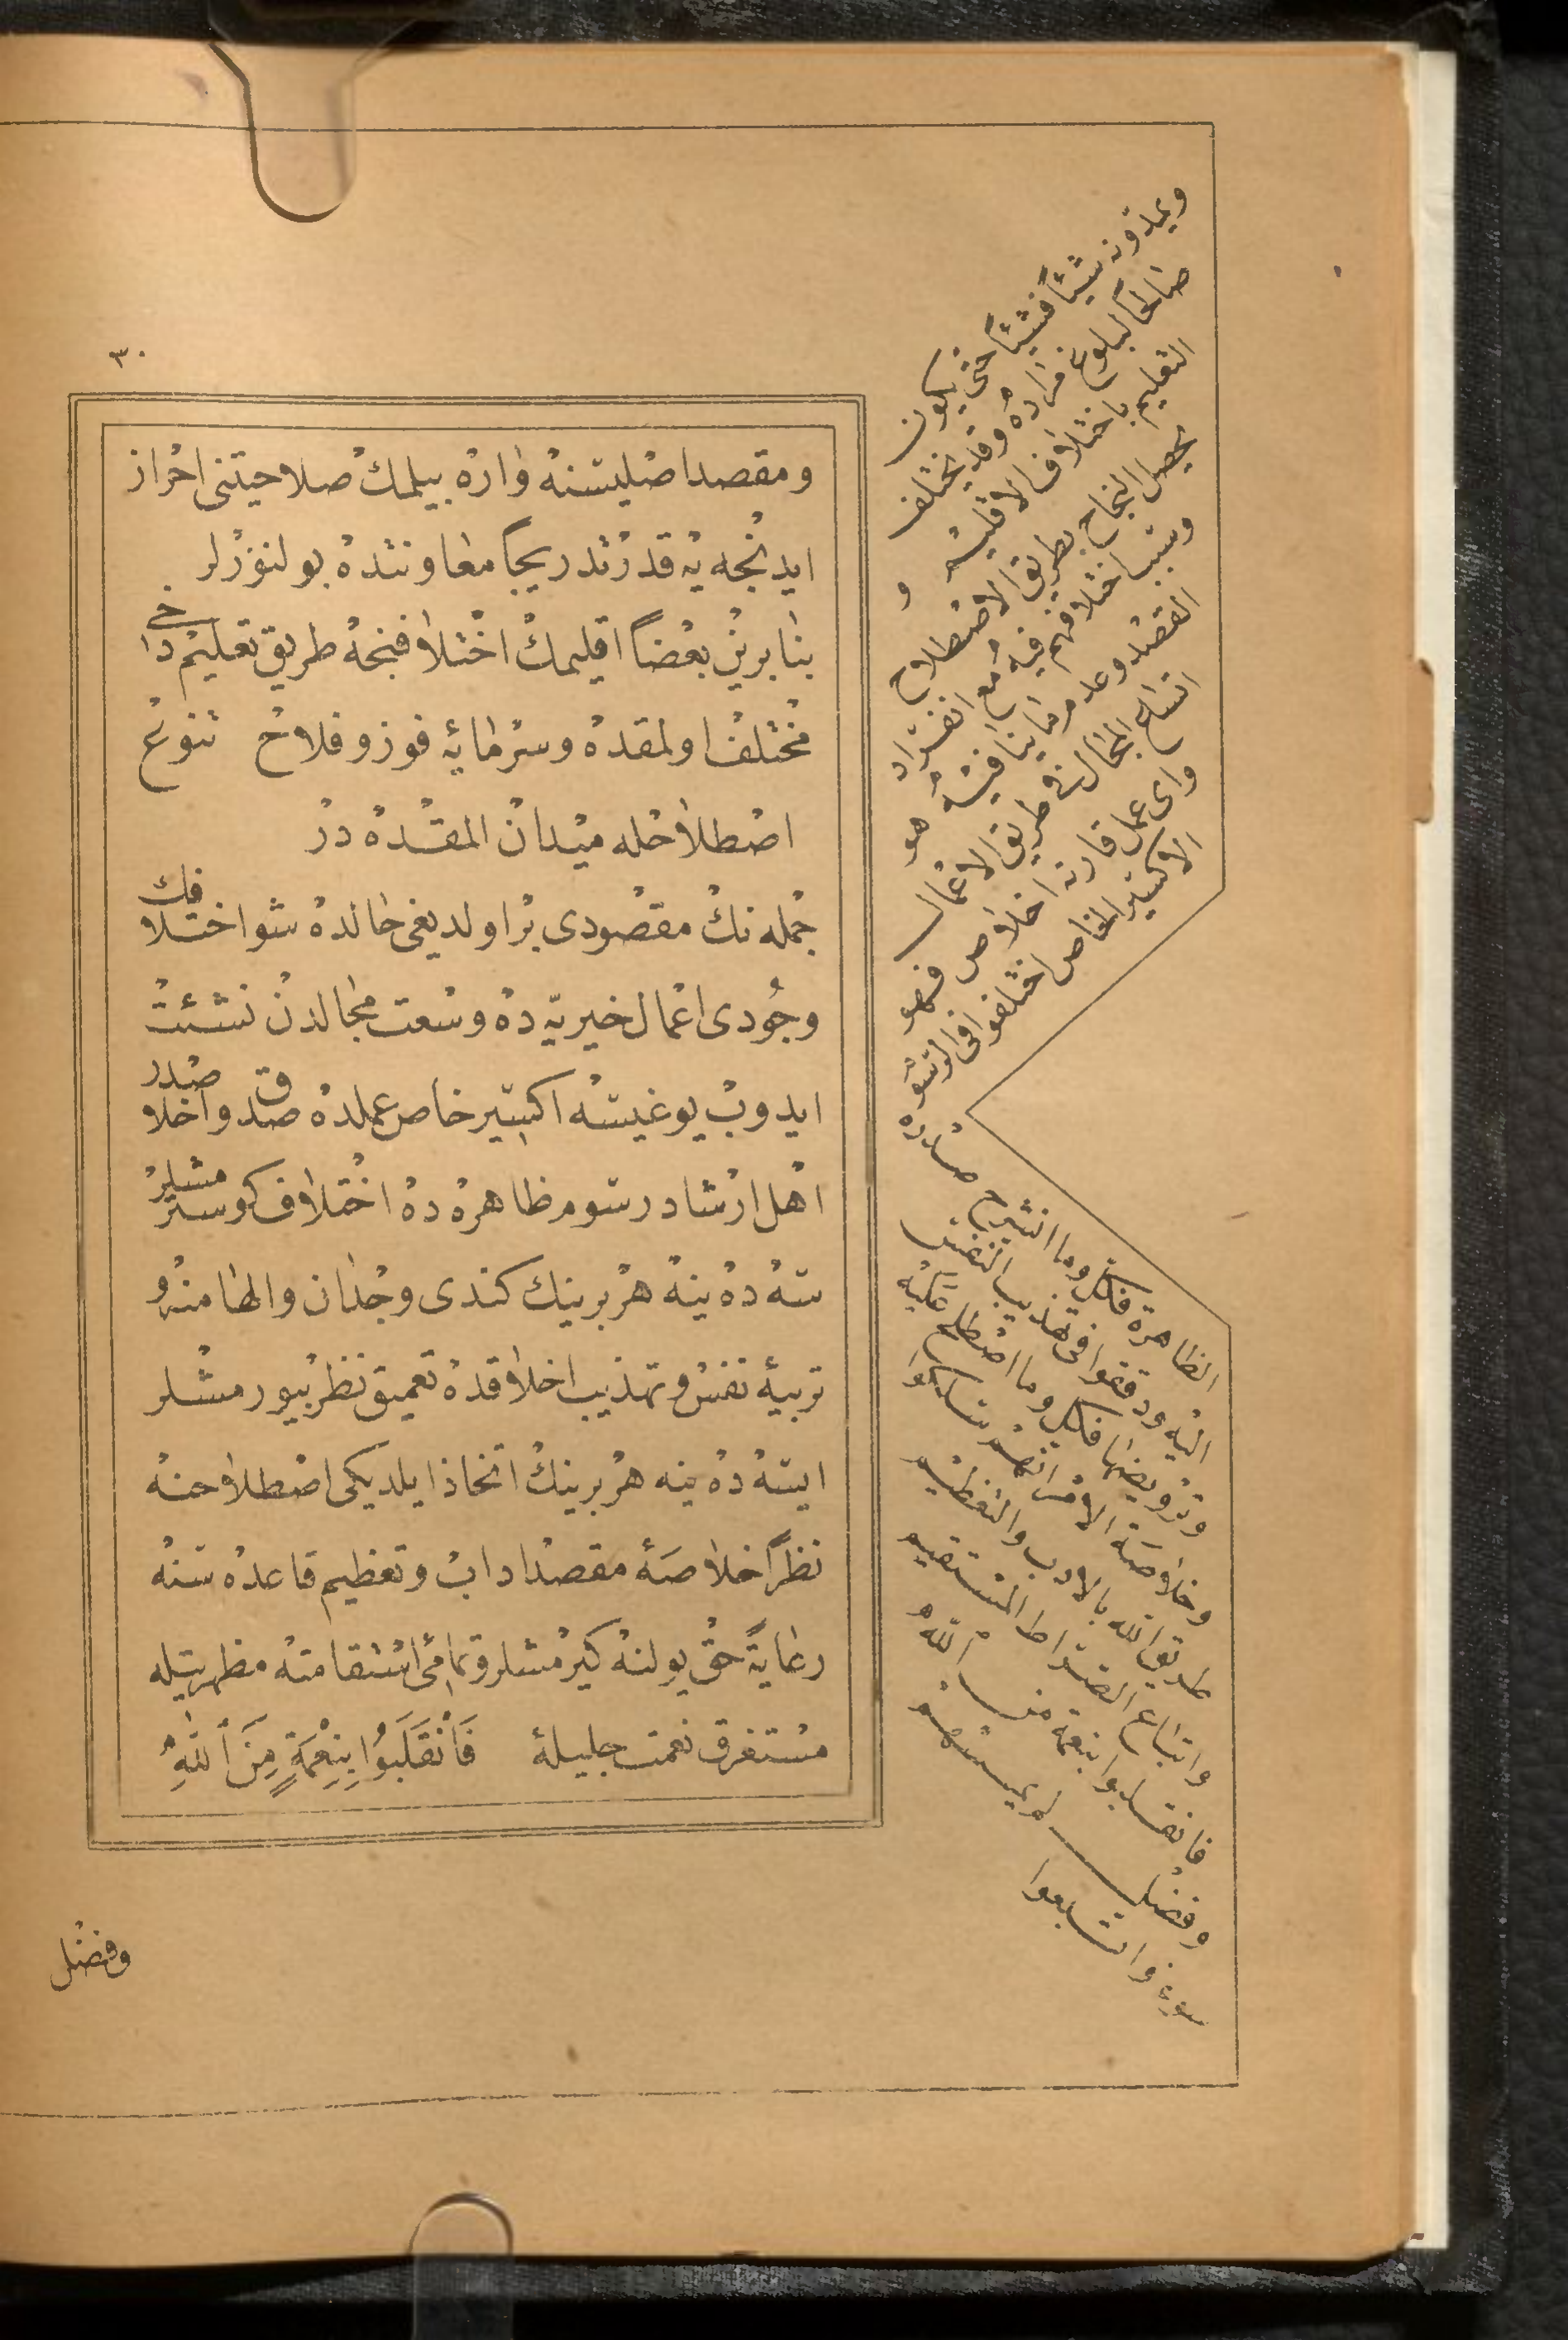 ٣٠
ومقصد اصليسنه واره بيلمك صلاحيتنى احراز
ايدنجه يه قدر تدريجا معاونتده بولنورلر
بنا برين بعضاً اقليمك اختلافنجه طريق تعليم داخى
مختلف اولمقده وسرمايه فوز وفلاح تنوع
اصطلاحله ميدان المقده در
جمله نك مقصودى بر اولديغى حالده شو اختلافك
وجودى اعمال خيريه ده وسعت مجالدن نشئت
ايدوب يوغيسه اكسير خاص عملده صدق واخلاصدر
اهل ارشاد رسوم ظاهره ده اختلاف كوسترمشلر
سه ده ينه هر برينك كندى وجدان والهامنه و
تربيۀ نفس وتهذيب اخلاقده تعميق نظر بيورمشلر
ايسه ده ينه هر برينك اتخاذ ايلديكى اصطلاحنه
نظراً خلاصۀ مقصد اداب وتعظيم قاعده سنه
رعايةً حق يولنه كيرمشلر وتمامئ استقامته مظهريتله
مستغرق نعمت جليلۀ فَٱنْقَلَبُوا بِنِعْمَةٍ مِنَ ٱللّٰهِ
وفضل
ويمدونه شيئاً فشيئاً حتى يكون
صالحاً لبلوغ مراده وقد يختلف
التعليم باختلاف الاقليم و
يحصل النجاح بطريق الاصطلاح
وسبب اختلافهم فيه مع انفراد
القصد وعدم ما ينافيه هو
اتساع المجال فى طريق الاعمال
واى عمل قارنه اخلاص فهو
الاكسير الخاص اختلفوا فى الرسوم
الظاهرة فكل وما انشرح صدره
اليه ودققوا فى تهذيب النفس
وترويضها فكل وما اصطلح عليه
وخلاصة الامر انهم سلكوا
طريق الله بالادب والتعظيم
واتباع الصراط المستقيم
فانقلبوا بنعمة من الله
وفضل لم يمسسهم
سوء واتبعوا